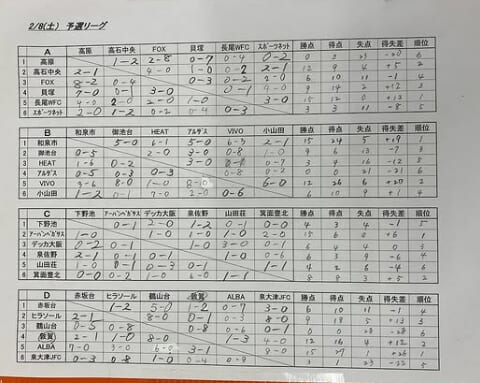 2/8(土) 予選リーグ
A 高原 高石中央 FOX 貝塚 長尾WFC スポーツネット 勝点 得点 失点 得失差 順位
1 高原 1-2 2-8 0-7 0-4 0-2 0 3 23 -20 6
2 高石中央 2-1 4-0 1-0 2-1 12 9 4 +5 2
3 FOX 8-2 0-4 0-3 0-2 6 10 11 -1 4
4 貝塚 7-0 0-1 3-0 0-1 4-0 9 14 2 +12 3
5 長尾WFC 4-0 2-0 1-0 3-0 15 12 0 1
6 スポーツネット 2-0 1-2 0-4 0-3 3 3 11 -8 5
B 和泉市 御池台 HEAT アルザス VIVO 小山田 勝点 得点 失点 得失差 順位
1 和泉市 5-0 6-1 5-0 6-3 2-1 15 24 5 +19 1
2 御池台 0-5 2-0 3-0 0-8 9 6 13 -7 3
3 HEAT 1-6 0-2 3-0 0-7 3 4 16 -12 5
4 アルザス 0-5 0-3 0-3 0-2 0 0 21 -21 6
5 VIVO 3-6 8-0 1-0 6-0 12 26 6 2
6 小山田 1-2 0-1 7-0 2-0 0-6 6 10 9 +1 4
C 下野池 アーバンペガサス デッカ大阪 泉佐野 山田荘 箕面豊北 勝点 得点 失点 得失差 順位
1 下野池 0-1 2-0 1-2 0-1 0-0 4 3 4 -1 5
2 アーバンペガサス 1-0 1-0 1-0 1-0 15 6 0 +6 1
3 デッカ大阪 0-2 0-1 0-1 3-0 0-1
4 泉佐野 2-1 0-1 1-0 0-1 0-6 6 3 9 -6 4
5 山田荘 1-0 0-1 0-3 1-0 1-1 4 2
6 箕面豊北 0-0 0-2 1-0 6-0 1-1 8 4 2
D 赤坂台 ヒラソール 鶴山台 敦賀 ALBA 泉大津JFC 勝点 得点 失点 得失差 順位
1 赤坂台 1-2 5-0 1-2 0-7 3-0 6 10 11 -1 4
2 ヒラソール 2-1 8-0 0-1 0-3 8-0 9 18 5 +13 3
3 鶴山台 0-5 0-8 0-8 0-6 0-1 0 0 28 -28 6
4 敦賀 2-1 1-0 8-0 1-3 4-0 12 16 4 +12 2
5 ALBA 7-0 3-0 6-0 3-1 8-0 15 27 1 +26 1
6 泉大津JFC 0-3 0-8 1-0 0-4 0-8 3 1 23 -22 5